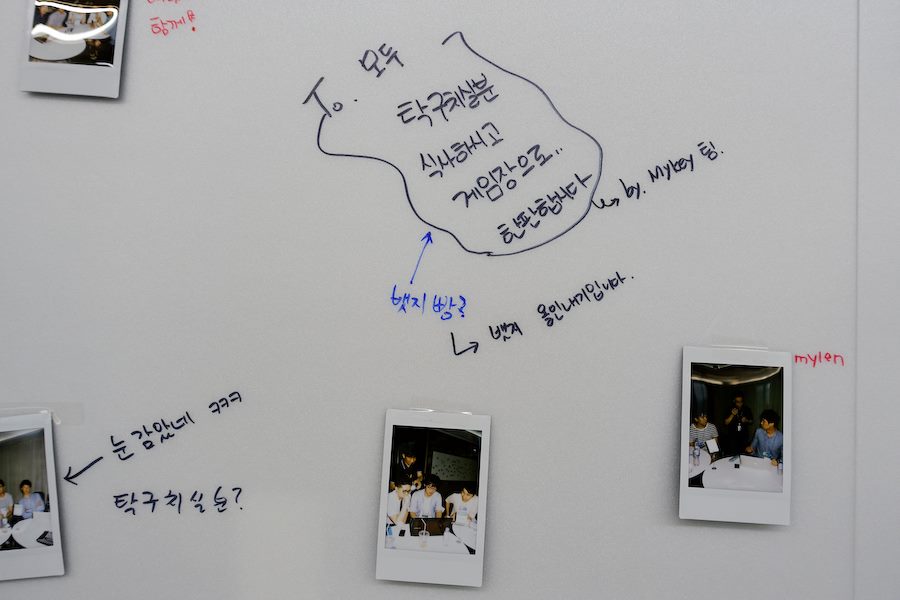 함께!
To. 모두
탁구치실분
식사하시고
게임장으로..
한판합니다
by. Mykey 팅.
뱃지빵?
뱃지 올인내기입니다.
mylen
눈감았네 ㅋㅋㅋ
탁구치실분?